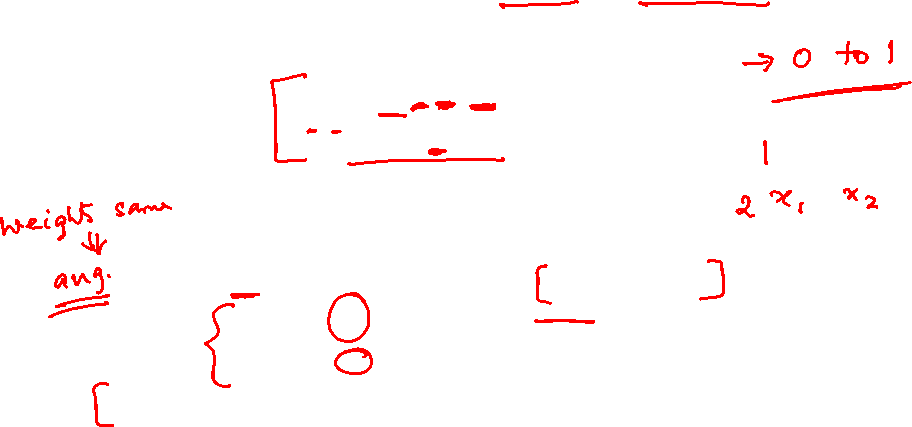 → 0 to 1
1
2 x₁ x₂
weights same
avg.